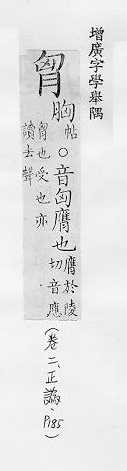 增廣字學舉隅
胷
胸帖○音匈膺也膺於陵
切音應
匈也受也亦
讀去聲
(卷二、正譌·P185)